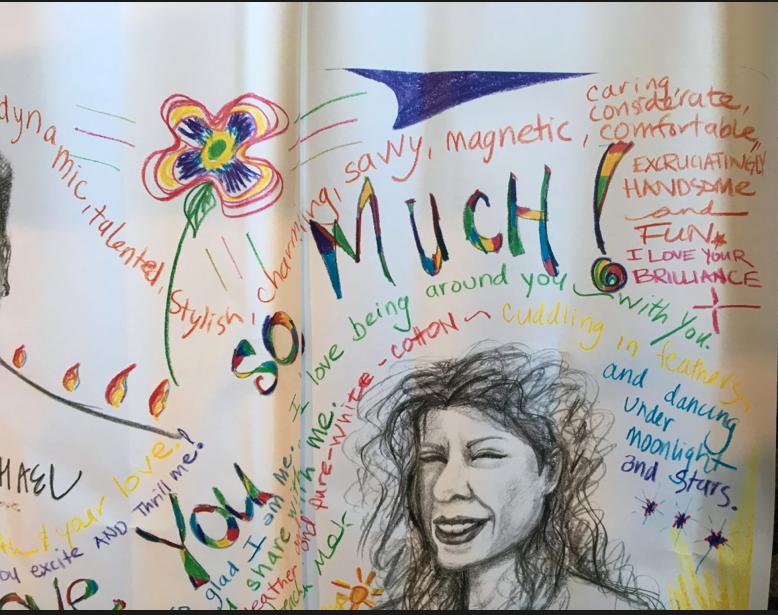 dynamic, talented, stylish, charming, savvy, magnetic,
caring,
considerate,
comfortable,
EXCRUCIATINGLY
HANDSOME
and
FUN.
I LOVE YOUR
BRILLIANCE
YOU
SO
MUCH!
I love being around you
with you.
pure-white-cotton
cuddling in feathers,
and dancing
under
moonlight
and stars.
glad I am me.
share with me.
your love.
excite AND Thrill me!